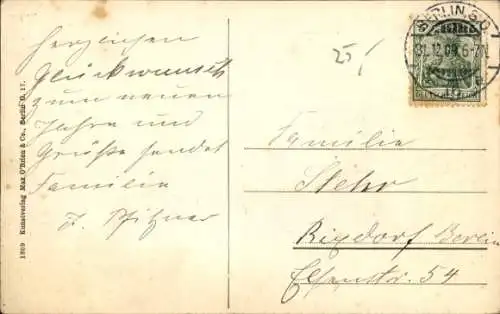 Herzlichen
Glückwunsch
zum neuen
Jahre und
Grüße sendet
Familie
Pfitzner
1869 Kunstverlag Max O'Brien & Co., Berlin O. 17.
25/
BERLIN S.O.
31.12.09. 6-7N
Familie
Stehr
Rixdorf Berlin
Elsenstr. 54